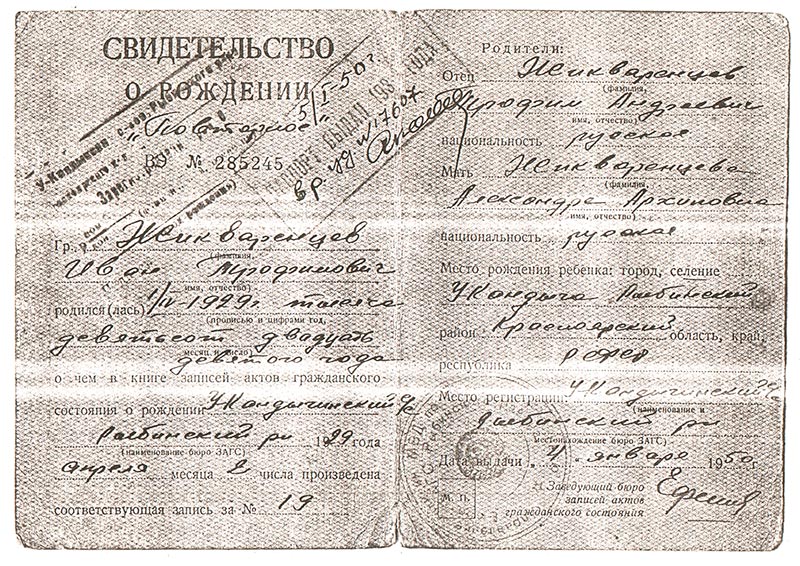 СВИДЕТЕЛЬСТВО
О РОЖДЕНИИ
"Повторное"
ВУ № 285245
5/I-50г.
ПАСПОРТ ВЫДАН 193 ГОДА
вр. уд № 17607
Гр. Жикваренцев
(фамилия,
Иван Трофимович
имя, отчество)
родился(лась) 1/IV-1929г тысяча
(прописью и цифрами год,
девятьсот двадцать
месяц и число)
девятого года
о чем в книге записей актов гражданского
состояния о рождении УКандычинский с/с
Рыбинский рн 1929 года
(наименование бюро ЗАГС)
апреля месяца 2 числа произведена
соответствующая запись за № 19
Родители:
Отец Жикваренцев
(фамилия,
Трофим Андреевич
имя, отчество)
национальность русское
Мать Жикваренцева
(фамилия,
Александра Архиповна
имя, отчество)
национальность русское
Место рождения ребенка: город, селение
УКандыча Рыбинский
район Красноярский область, край,
республика РСФСР
Место регистрации: УКандычинский с/с
(наименование и
Рыбинский рн
местонахождение бюро ЗАГС)
Дата выдачи 4 января 1950 г.
М. П.
Заведующий бюро
записей актов
гражданского состояния